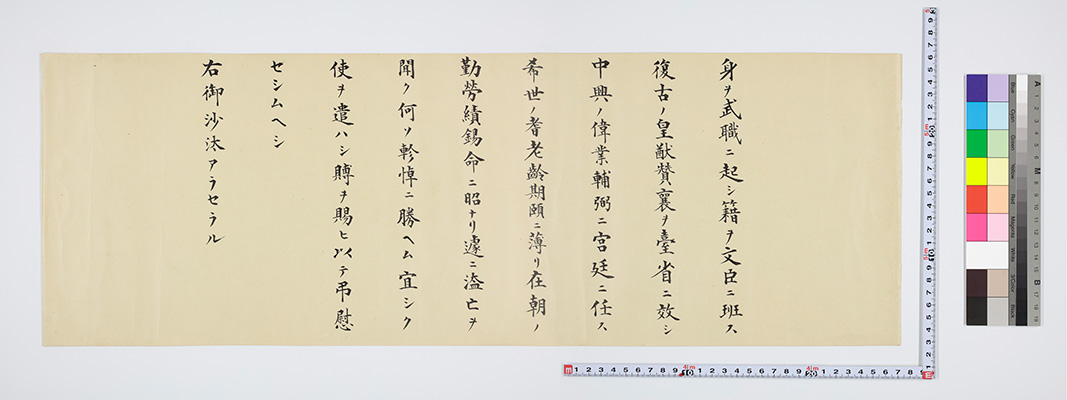 身ヲ武職ニ起シ籍ヲ文臣ニ班ス
復古ノ皇猷賛襄ヲ臺省ニ效シ
中興ノ偉業輔弼ニ宮廷ニ任ス
希世ノ耆老齡期頤ニ薄リ在朝ノ
勤勞績錫命ニ昭ナリ遽ニ溘亡ヲ
聞ク何ソ軫悼ニ勝ヘム宜シク
使ヲ遣ハシ賻ヲ賜ヒ以テ弔慰
セシムヘシ
右御沙汰アラセラル